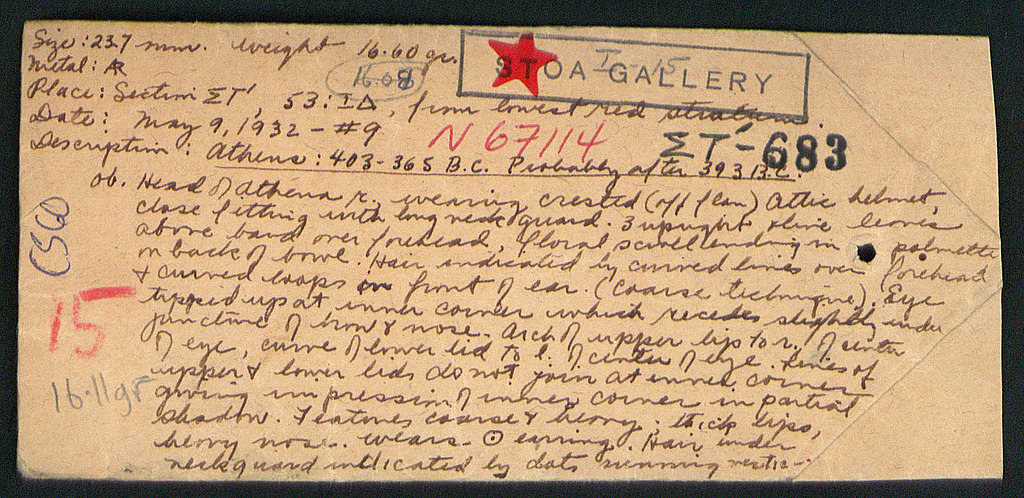 Size: 23.7 mm. weight 16.60 gr.
16.08
STOA GALLERY
I-15
Metal: AR
Place: Section ΣΤ', 53:ΙΔ, from lowest red stratum.
Date: May 9, 1932 - #9
N 67114
ΣΤ'-683
Description: Athens: 403-365 B.C. Probably after 393 B.C.
ob. Head of Athena r. wearing crested (off flan) Attic helmet,
close fitting with long neck guard. 3 upright olive leaves
above band over forehead, floral scroll ending in palmette
on back of bowl. Hair indicated by curved lines over forehead
& curved loops in front of ear. (Coarse technique). Eye
tipped up at inner corner which recedes slightly under
juncture of brow & nose. Arch of upper lip to r. of center
of eye, curve of lower lid to l. of center of eye. Lines of
upper & lower lids do not join at inner corner
giving impression of inner corner in partial
shadow. Features coarse & heavy. thick lips,
heavy nose. wears ⊙ earring. Hair under
neckguard indicated by dots running vertic-
CSGD
15
16.11 gr